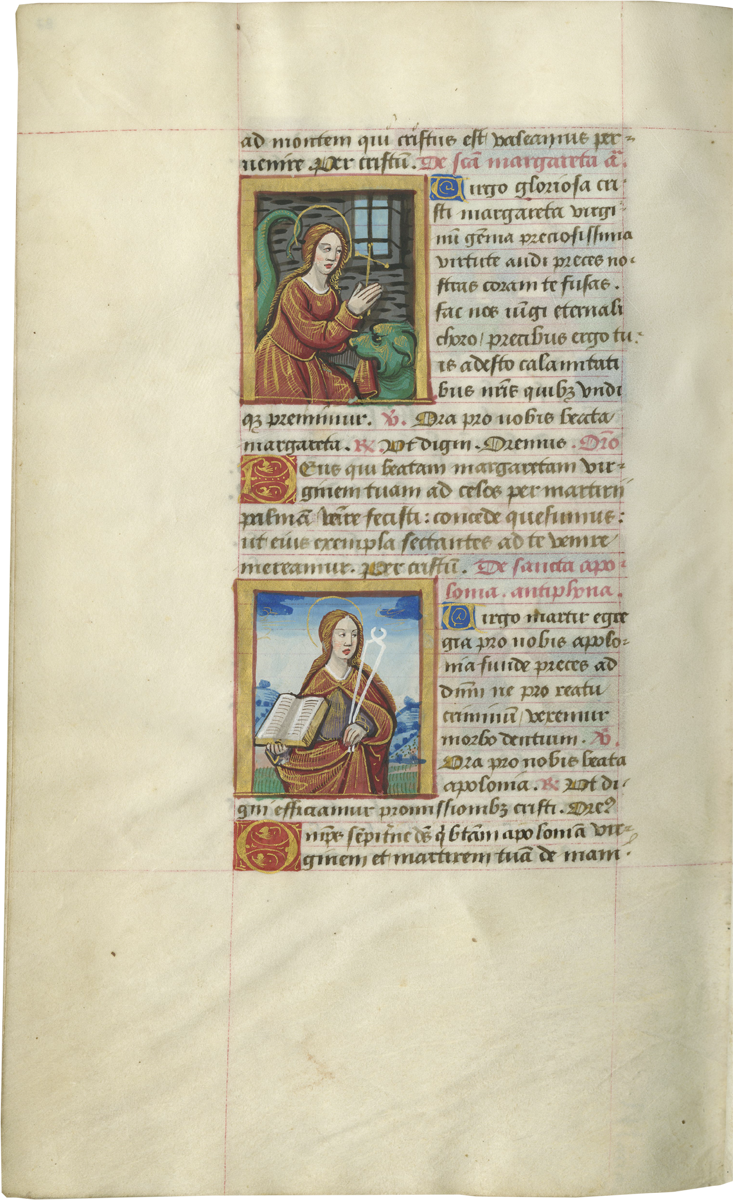 ad montem qui cristus est valeamus per-
uenire. Per cristū. De scā margareta aā.
Virgo gloriosa cri-
sti margareta virgi-
nū gēma preciosissima
virtute audi preces no-
stras coram te fusas.
fac nos iūgi eternali
choro / precibus ergo tu-
is adesto calamitati
bus nr̄is quibꝫ vndi
qꝫ premimur. ℣. Ora pro nobis beata
margareta. ℟. Vt digin. Oremus. Orō
Deus qui beatam margaretam vir-
ginem tuam ad celos per martirii
palmā venire fecisti : concede quesumus :
ut eius exempla sectantes ad te venire
mereamur. Per cristū. De sancta apo-
lonia. antiphona.
Virgo martir egre
gia pro nobis apolo-
nia funde preces ad
dn̄m ne pro reatu
criminū / vexemur
morbo dentium. ℣.
Ora pro nobis beata
apolonia. ℟. Vt di
gni efficiamur promissionibꝫ cristi. Orē
Omp̄s sēpit̄ne ds̄ q̄ btām apoloniā vir-
ginem et martirem tuā de mani-